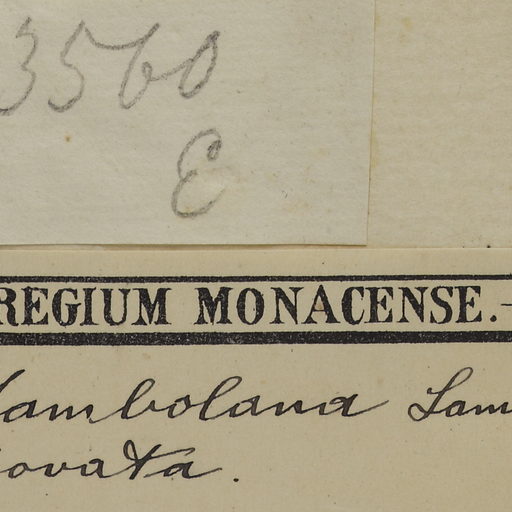 3560
E
REGIUM MONACENSE. -
Jambolana Lam
ovata.